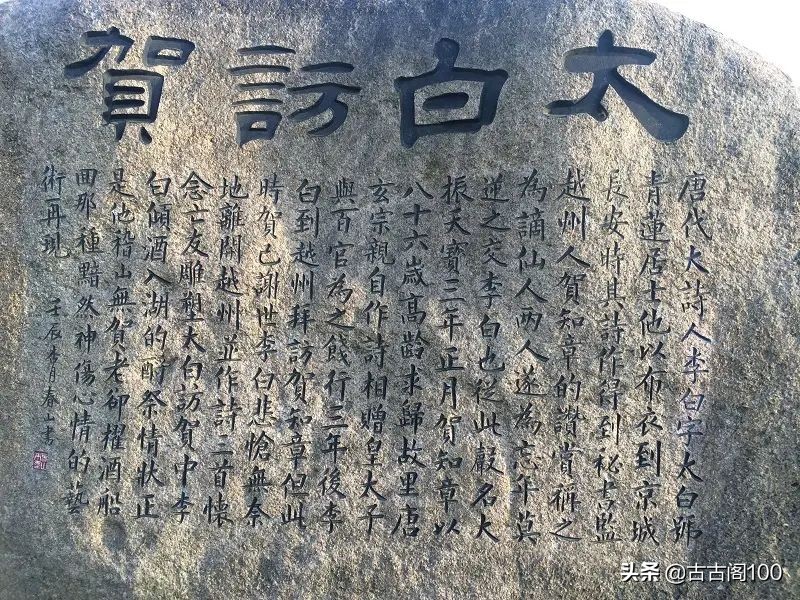 太白訪賀
唐代大詩人李白字太白號
青蓮居士他以布衣到京城
長安時其詩作得到秘書監
越州人賀知章的讚賞稱之
為謫仙人两人遂為忘年莫
逆之交李白也從此聲名大
振天寶三年正月賀知章以
八十六歲高齡求歸故里唐
玄宗親自作詩相贈皇太子
與百官為之餞行三年後李
白到越州拜訪賀知章但此
時賀已謝世李白悲愴無奈
地離開越州並作詩二首懷
念亡友雕塑太白訪賀中李
白傾酒入湖的酹祭情狀正
是他稽山無賀老卻櫂酒船
囬那種黯然神傷心情的藝
術再現 壬辰季月春山書
头条 @古古阁100